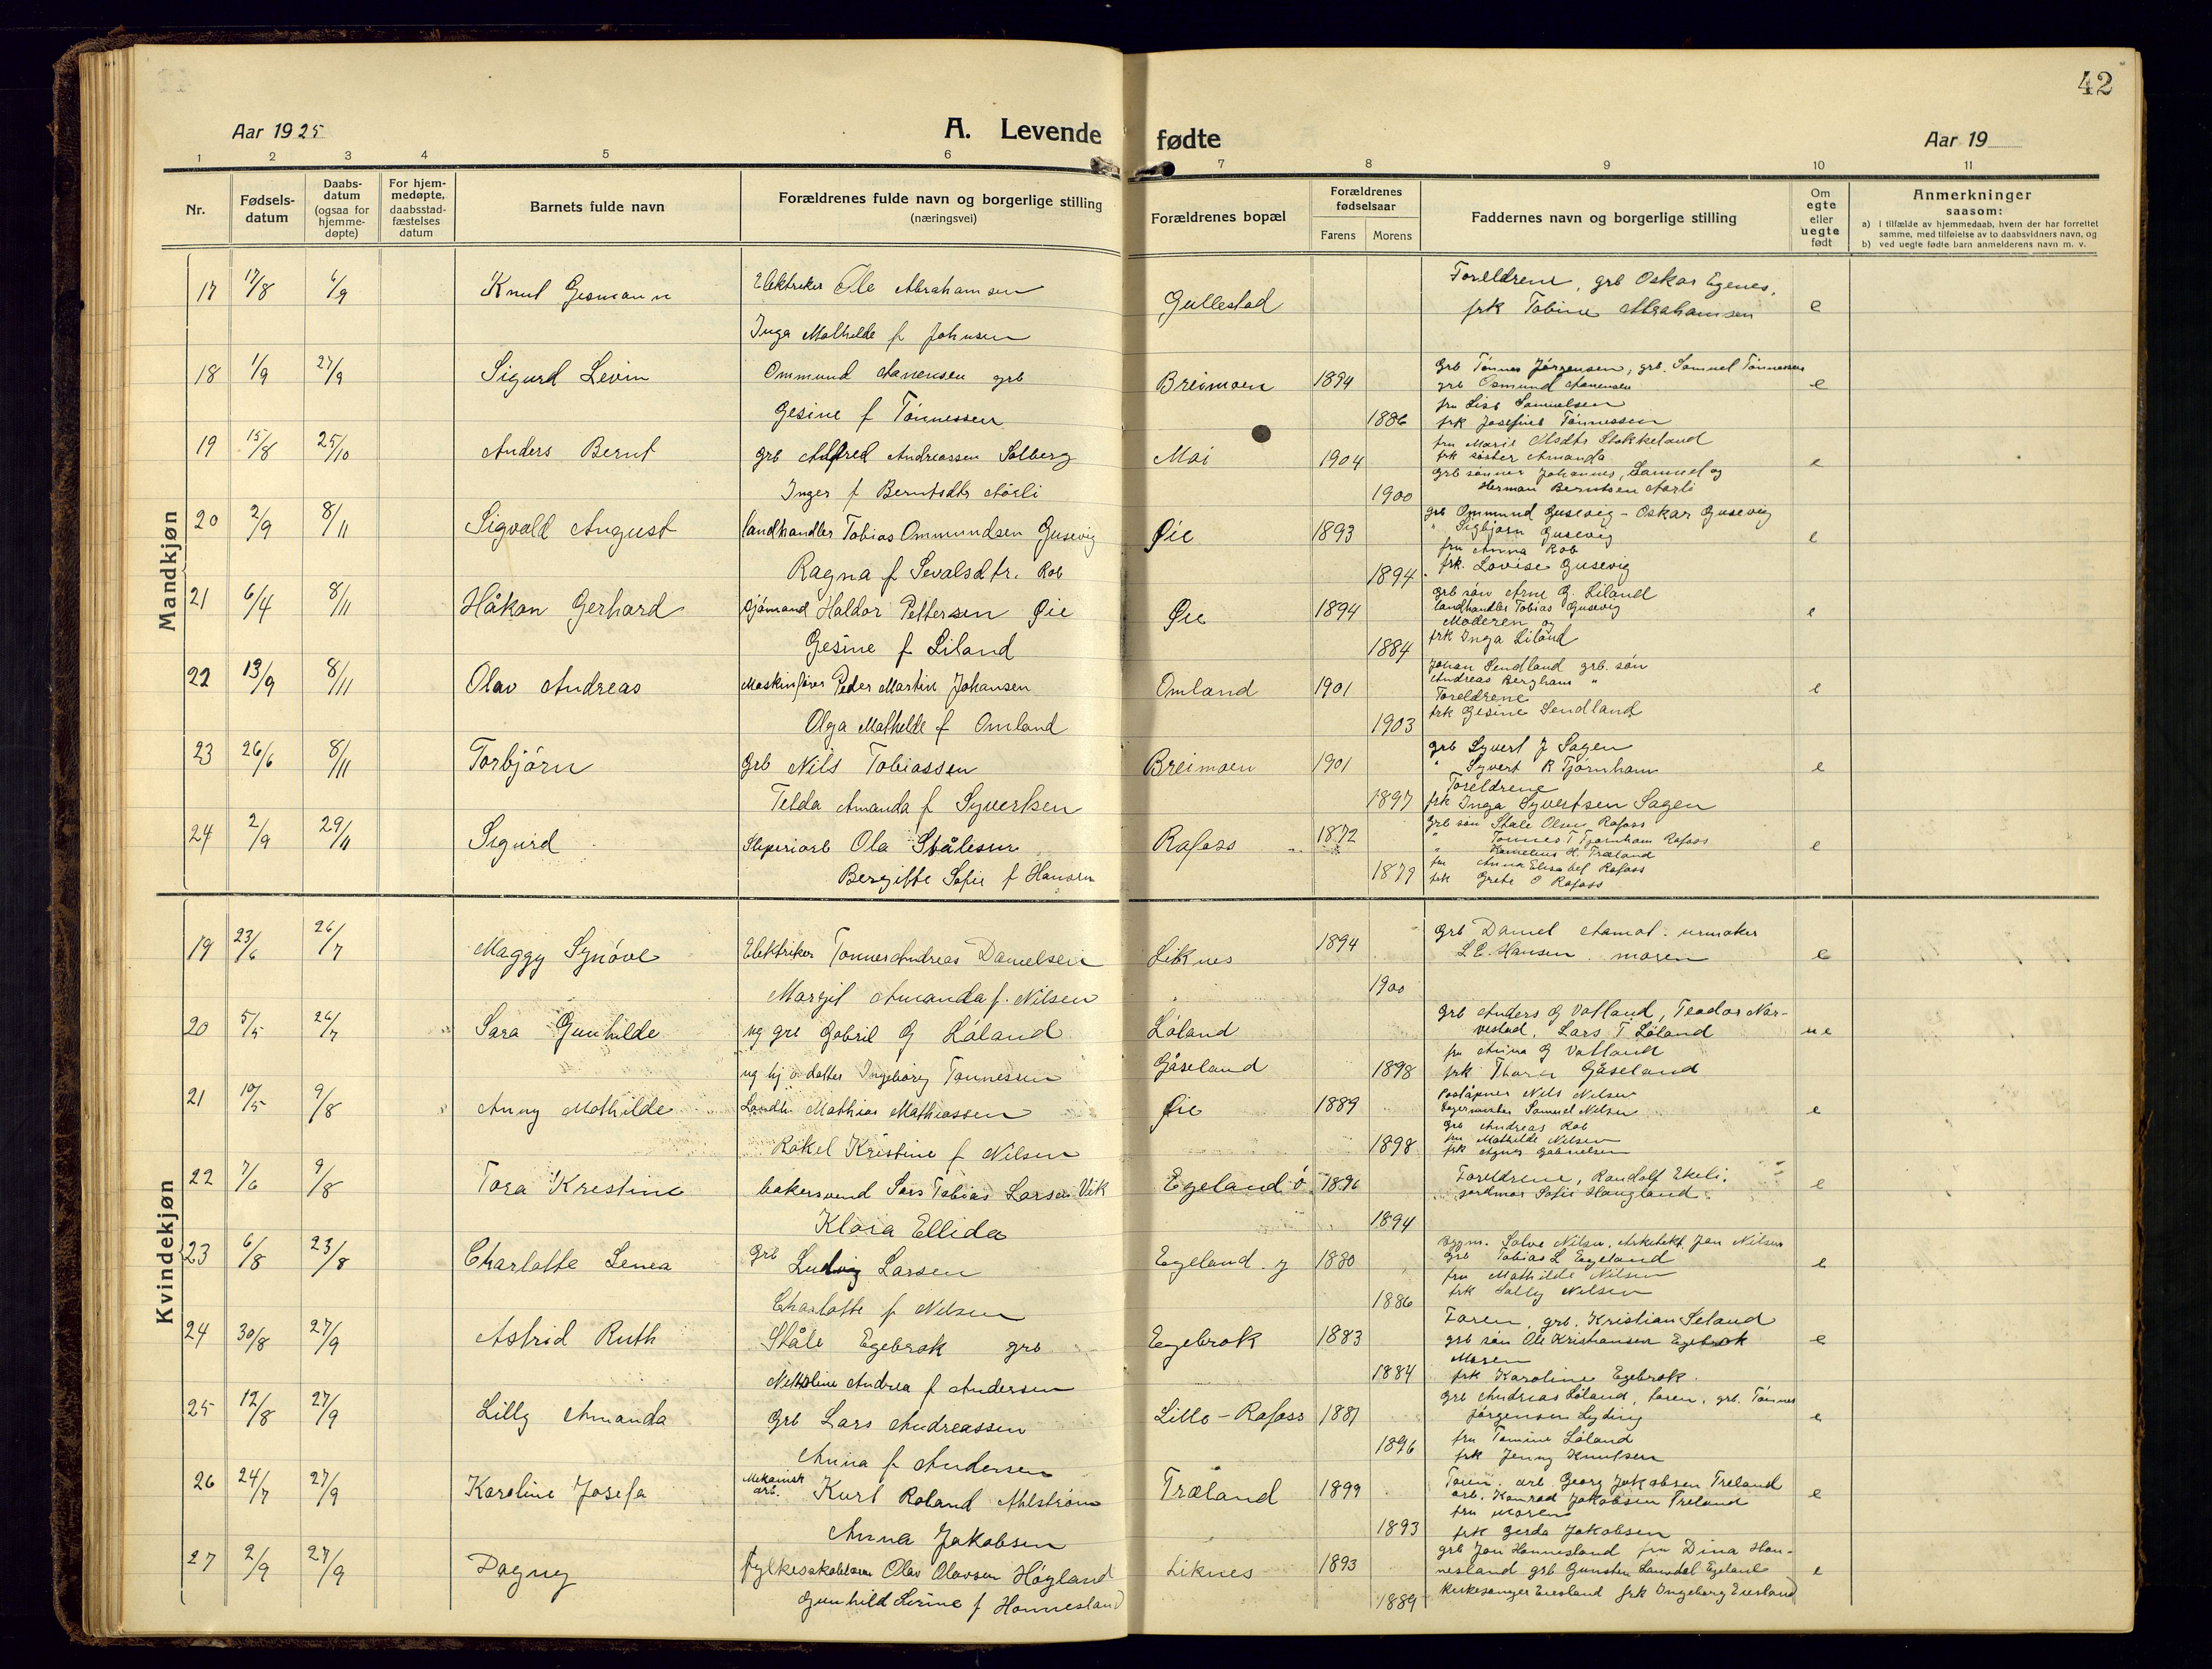 42
Aar 1925
A. Levende fødte
Aar 19
1 2 3 4 5 6 7 8 9 10 11
Nr.
Fødsels-datum
Daabs-datum (ogsaa for hjemme-døpte)
For hjem-medøpte, daabsstad-fæstelses datum
Barnets fulde navn
Forældrenes fulde navn og borgerlige stilling (næringsvei)
Forældrenes bopæl
Forældrenes fødselsaar
Farens
Morens
Faddernes navn og borgerlige stilling
Om egte eller uegte født
Anmerkninger saasom:
a) i tilfælde av hjemmedaab, hvem der har forrettet samme, med tilføielse av to daabsvidners navn, og
b) ved uegte fødte barn anmelderens navn m. v.
Mandkjøn
17 17/8 6/9 Knut Gesmann Elektriker Ole Abrahamsen Gullestad Foreldrene, grb Oskar Egenes, e
Inga Mathilde f Johnsen frk Tobine Abrahamsen
18 1/9 27/9 Sigurd Levin Ommund Aanensen grb Breimoen 1894 grb Tønnes Jørgensen, grb. Samuel Tønnessen e
grb Osmund Aanensen
Gesine f Tønnessen 1886 fru Lise Samuelsen
frk Josefine Tønnessen
19 15/8 25/10 Anders Bernt grb Alfred Andreassen Solberg Moi 1904 fru Marie Olsdtr Stokkeland e
frk søster Amanda
Inger f Berntsdtr Aarli 1900 grb sønner Johannes, Samuel og
Herman Berntsen Aarli
20 2/9 8/11 Sigvald August landhandler Tobias Ommundsen Gusevig Øie 1893 grb Ommund Gusevig - Oskar Gusevig e
" Sigbjørn Gusevig
fru Anna Rob
Ragna f Sevalsdtr. Rob 1894 frk. Lovise Gusevig
21 6/4 8/11 Håkon Gerhard sjømand Haldor Pettersen Øie Øie 1894 grb søn Arne G. Liland e
landhandler Tobias Gusevig
Moderen og
Gesine f Liland 1884 frk Inga Liland
22 13/9 8/11 Olav Andreas Maskinfører Peder Martin Johansen Omland 1901 Johan Sendland grb. søn e
Andreas Bergham "
Foreldrene
Olga Mathilde f Omland 1903 frk Gesine Sendland
23 26/6 8/11 Torbjørn grb Nils Tobiassen Breimoen 1901 grb Syvert J Sagen e
" Syvert R Tjørnham
Foreldrene
Telda Amanda f Syvertsen 1897 frk Inga Syvertsen Sagen
24 2/9 29/11 Sigurd Sliperiarb Ola Stålesen Rafoss 1872 grb søn Ståle Olsen Rafoss e
" Tønnes T Tjørnham Rafoss
" Kornelius H. Træland
Bergitte Sofie f Hansen 1879 fru Anna Elisabet Rafoss
frk Grete O Rafoss
Kvindekjøn
19 23/6 26/7 Maggy Synøve Elektriker Tønnes Andreas Danielsen Liknes 1894 grb Daniel Aamot. urmaker e
L. E. Hansen. moren
Margit Amanda f. Nilsen " 1900
20 5/5 26/7 Sara Gunhilde ug grb Gabriel G Løland Løland grb Anders G Vatland, Teodor Nar- ue
vestad, Lars T. Løland
fru Anna G Vatland
ug hj.v. datter Ingeborg Tønnessen Gåseland 1898 frk Thora Gåseland
21 10/5 9/8 Anny Mathilde Landh. Mathias Mathiassen Øie 1889 Poståpner Nils Nilsen e
Lagermester Samuel Nilsen
grb Andreas Rob
Rakel Kristine f Nilsen 1898 fru Mathilde Nilsen
frk Agnes Gabrielsen
22 7/6 9/8 Tora Kristine bakersvend Lars Tobias Larsen Vik Egeland ø 1896 Foreldrene, Randolf Ekeli. e
jordmor Sofie Haugland.
Klara Ellida 1894
23 6/8 23/8 Charlotte Lenea grb Ludvig Larsen Egeland. y 1880 Salve Nilsen, Arkitekt Jan Nilsen e
grb Tobias L Egeland
fru Mathilde Nilsen
Charlotte f Nilsen 1886 frk Solly Nilsen
24 30/8 27/9 Astrid Ruth Ståle Egebrok grb Egebrok 1883 Faren, grb. Kristian Seland e
grb søn Ole Kristiansen Egebrok
Moren
Nettoline Andrea f Andersen 1884 frk Karoline Egebrok.
25 12/8 27/9 Lilly Amanda grb Lars Andreassen Lille-Rafoss 1881 grb Andreas Løland, faren, grb. Tønnes e
Jørgensen Lyding
fru Tomine Løland
Anna f Andersen 1896 frk Jenny Knutsen
26 24/7 27/9 Karoline Josefa Mekanisk arb. Kurt Roland Ahlstrøm Træland 1899 Faren, arb. Georg Jakobsen Træland e
arb. Konrad Jakobsen Treland
fru Moren
Anna Jakobsen 1893 frk Gerda Jakobsen
27 2/9 27/9 Dagny fylkesskolelærer Olav Olavsen Høyland Liknes 1893 grb Jon Honnesland fru Dina Hon- e
nesland grb Gunsten Lansdal Egeland
Gunhild Lirine f Honnesland 1889 Kirkesanger Eiesland frk Ingeborg Eiesland